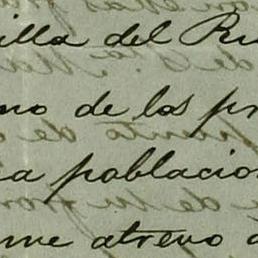 illa del Ru
no de los pr
a poblacion
me atrevo a